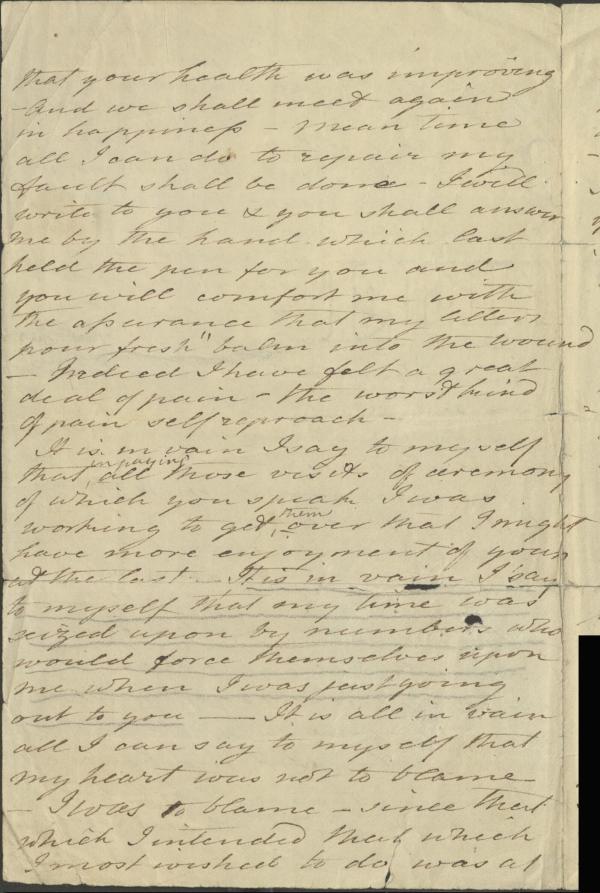 that your health was improving
- And we shall meet again
in happiness - Mean time
all I can do to repair my
fault shall be done - I will
write to you & you shall answer
me by the hand which last
held the pen for you and
you will comfort me with
the assurance that my letters
pour fresh "balm into the wound
- Indeed I have felt a great
deal of pain - the worst kind
of pain self reproach -
It is in vain I say to myself
that in paying all those visits of ceremony
of which you speak I was
working to get them over that I might
have more enjoyment of you
at the last - It is in vain I say
to myself that my time was
seized upon by numbers who
would force themselves upon
me when I was just going
out to you - It is all in vain
all I can say to myself that
my heart was not to blame
- I was to blame - since that
which I intended that which
I most wished to do was at